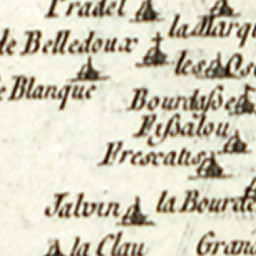 Pradel
la Marqu
de Belledoux
les Os
e Blanque
Bourdasse
Pissalou
Frescatis
Jalvin
la Bourde
la Clau
Grand